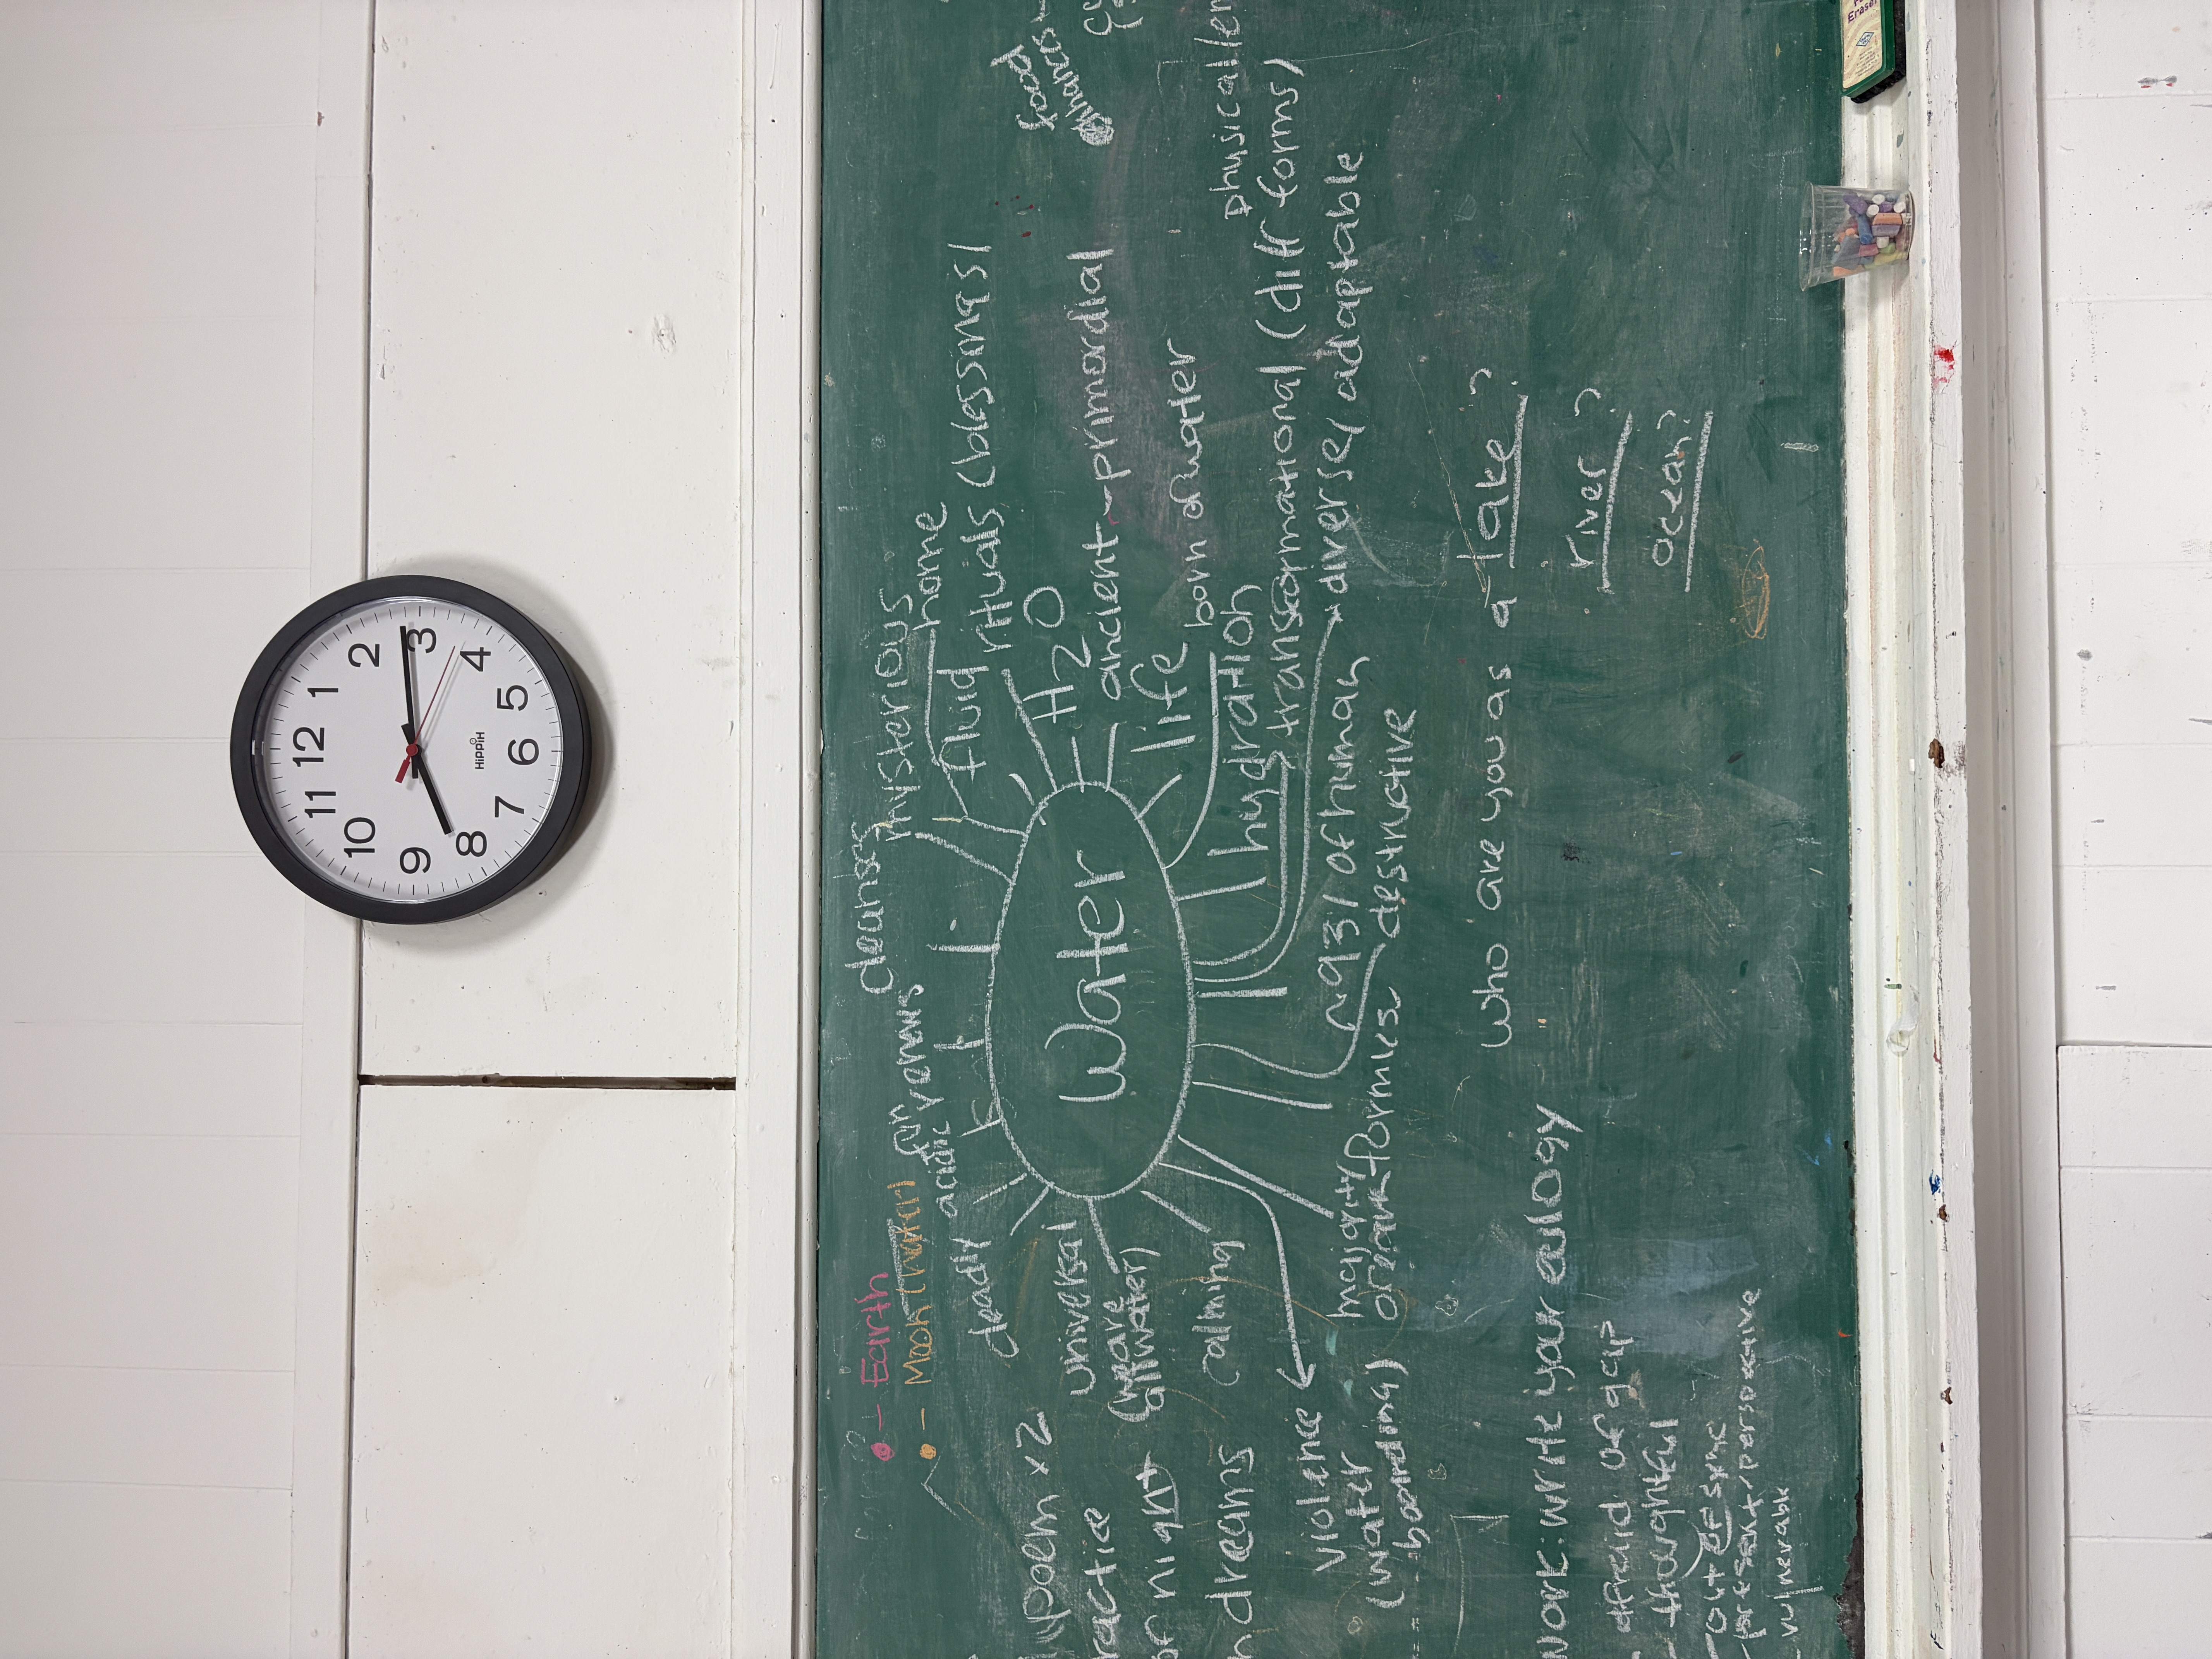 12
11
1
10
2
9
3
8
4
7
5
6
HiPPiH
Eraser
- Earth
- Moon (water)
cleanser
mysterious
home
fun
acidic venus
fluid
rituals (blessings)
food
deadly
H2O
poem x2
universal
ancient - primordial
(we are
all water)
Water
life
born of water
ractice
or night
calming
hydration
physical/em
dreams
transformational (diff forms)
violence
(water
boarding)
majority
of human
diverse/adaptable
destructive
work: write your eulogy
who are you as a lake?
river?
ocean?
afraid of gap
- thoughtful
- out of sync
- present/perspective
- vulnerable